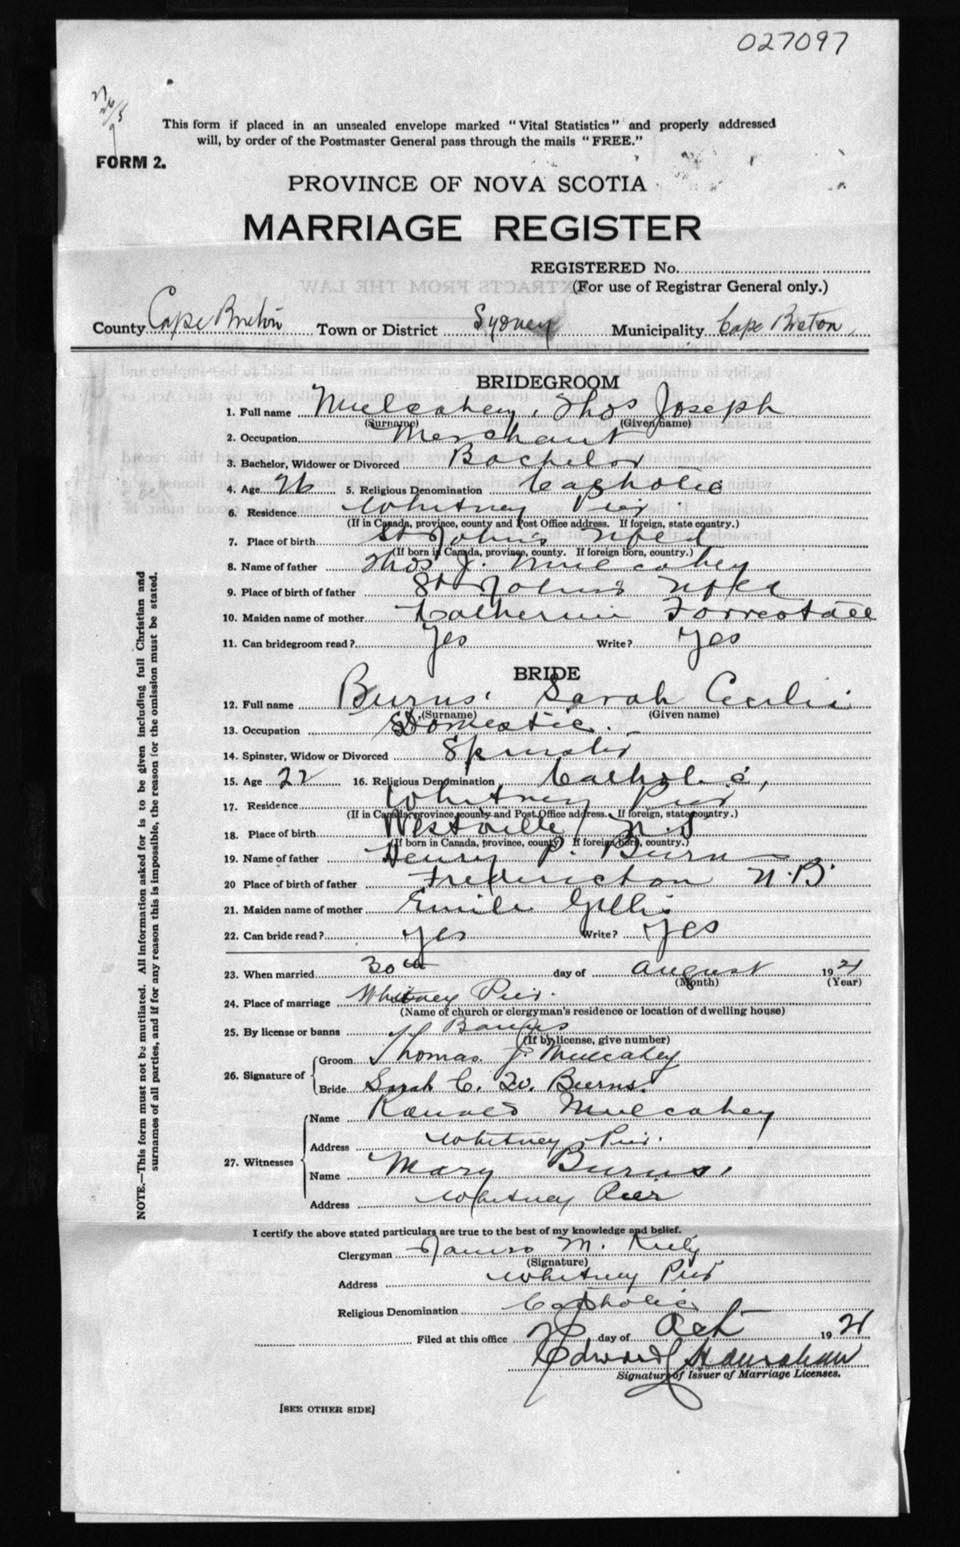 027097
This form if placed in an unsealed envelope marked "Vital Statistics" and properly addressed
will, by order of the Postmaster General pass through the mails "FREE."
FORM 2.
PROVINCE OF NOVA SCOTIA
MARRIAGE REGISTER
REGISTERED No.
(For use of Registrar General only.)
County Cape Breton Town or District Sydney Municipality Cape Breton
BRIDEGROOM
1. Full name Mulcahey, Thos Joseph
(Surname) (Given name)
2. Occupation Merchant
3. Bachelor, Widower or Divorced Bachelor
4. Age 26 5. Religious Denomination Catholic
6. Residence Whitney Pier
(If in Canada, province, county and Post Office address. If foreign, state country.)
7. Place of birth St John's Nfld
(If born in Canada, province, county. If foreign born, country.)
8. Name of father Thos J. Mulcahey
9. Place of birth of father St Johns Nfld
10. Maiden name of mother Catherine Forrestall
11. Can bridegroom read? Yes Write? Yes
BRIDE
12. Full name Burns, Sarah Cecilia
(Surname) (Given name)
13. Occupation Domestic.
14. Spinster, Widow or Divorced Spinster
15. Age 22 16. Religious Denomination Catholic,
17. Residence Whitney Pier
(If in Canada, province, county and Post Office address. If foreign, state country.)
18. Place of birth Westville, N.S
(If born in Canada, province, county. If foreign born, country.)
19. Name of father Henry P. Burns
20 Place of birth of father Fredericton N.B.
21. Maiden name of mother Emile Gillis
22. Can bride read? Yes Write? Yes
23. When married 30th day of August 1921
(Month) (Year)
24. Place of marriage Whitney Pier.
(Name of church or clergyman's residence or location of dwelling house)
25. By license or banns Banns
(If by license, give number)
26. Signature of
Groom Thomas J. Mulcahey
Bride Sarah C. W. Burns.
27. Witnesses
Name Ronald Mulcahey
Address Whitney Pier.
Name Mary Burns,
Address Whitney Pier
I certify the above stated particulars are true to the best of my knowledge and belief.
Clergyman M. Kiely
(Signature)
Address Whitney Pier
Religious Denomination Catholic
Filed at this office day of Oct 1921
Edward
Signature of Issuer of Marriage Licenses.
[SEE OTHER SIDE]
NOTE.—This form must not be mutilated. All information asked for is to be given including full Christian and
surnames of all parties, and if for any reason this is impossible, the reason for the omission must be stated.